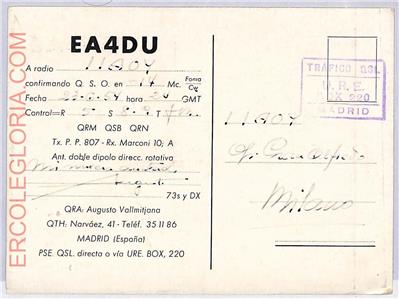 EA4DU
A radio I1AOY
confirmando Q. S. O. en 14 Mc. Fonia Cg
Fecha GMT
Control= R 5 S
QRM QSB QRN
Tx. P. P. 807 - Rx. Marconi 10; A
Ant. doble dipolo direcc. rotativa
73s y DX
QRA: Augusto Vallmitjana
QTH: Narváez, 41 - Teléf. 35 11 86
MADRID (España)
PSE. QSL. directa o vía URE. BOX, 220
TRÁFICO QSL
U. R. E.
BOX 220
MADRID
I1AOY
Milano
ERCOLEGLORIA.COM